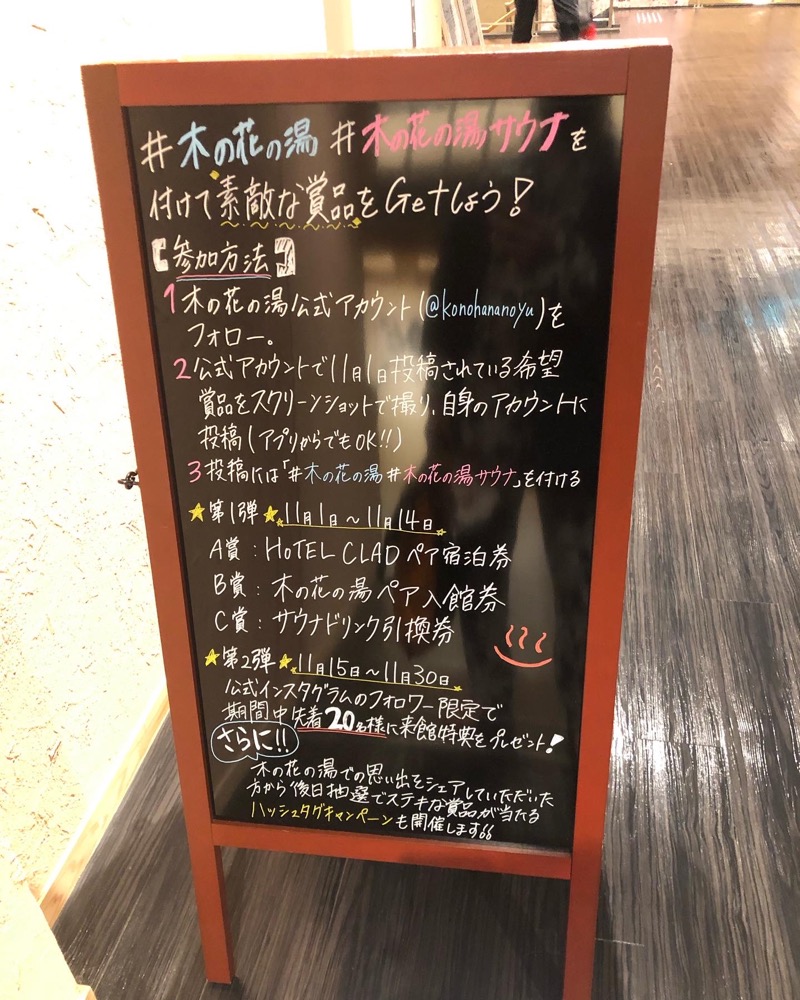 #木の花の湯 #木の花の湯サウナを
付けて素敵な賞品をGetしよう!
【参加方法】
1 木の花の湯公式アカウント(@konohananoyu)を
フォロー。
2 公式アカウントで11月1日投稿されている希望
賞品をスクリーンショットで撮り、自身のアカウントに
投稿(アプリからでもOK!!)
3 投稿には「#木の花の湯#木の花の湯サウナ」を付ける
★第1弾★11月1日~11月14日
A賞:HOTEL CLADペア宿泊券
B賞:木の花の湯ペア入館券
C賞:サウナドリンク引換券
★第2弾★11月15日~11月30日
公式インスタグラムのフォロワー限定で
期間中先着20名様に来館特典をプレゼント!
さらに!!
木の花の湯での思い出をシェアしていただいた
方から後日抽選でステキな賞品が当たる
ハッシュタグキャンペーンも開催します